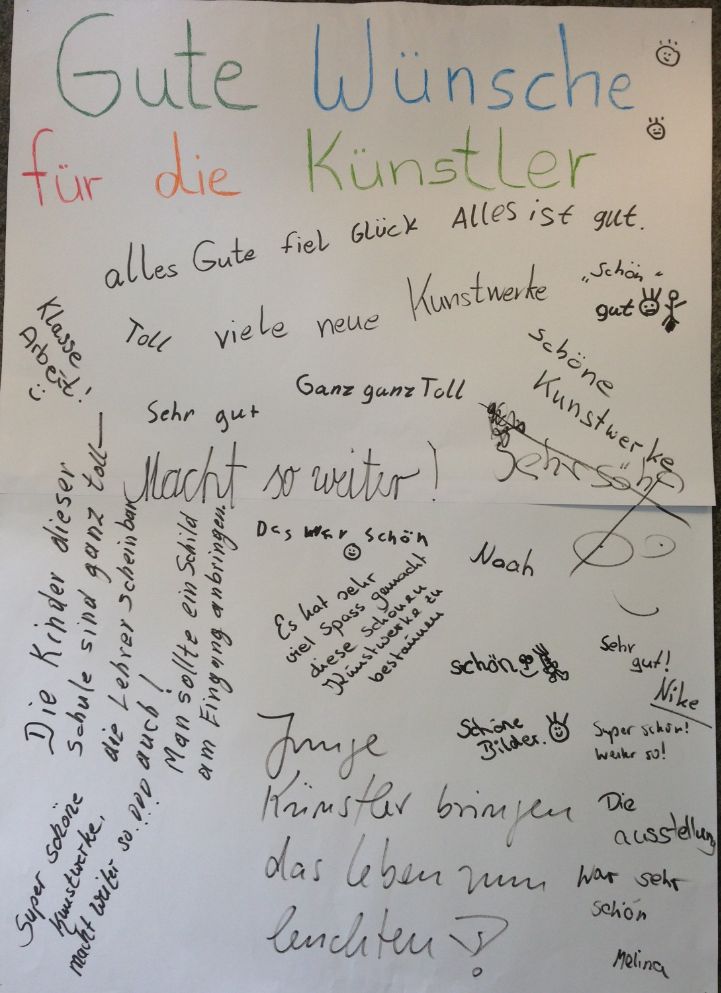 Gute Wünsche
für die Künstler
alles Gute fiel Glück Alles ist gut.
„Schön“
gut
Klasse
Arbeit!
Toll viele neue Kunstwerke
schöne
Kunstwerke
Sehr gut Ganz ganz Toll
Macht so weiter!
Sehr
Die Kinder dieser
Schule sind ganz toll—
die Lehrer scheinbar
auch!
Man sollte ein Schild
am Eingang anbringen.
Das war schön
Noah
Es hat sehr
viel Spass gemacht
diese schönen
Kunstwerke zu
bestaunen
schön
Sehr
gut!
Nike
Schöne
Bilder.
Super schön!
Weiter so!
Junge
Künstler bringen
das Leben zum
leuchten!
Die
ausstellung
War sehr
schön
Melina
Super schöne
Kunstwerke.
macht weiter so...